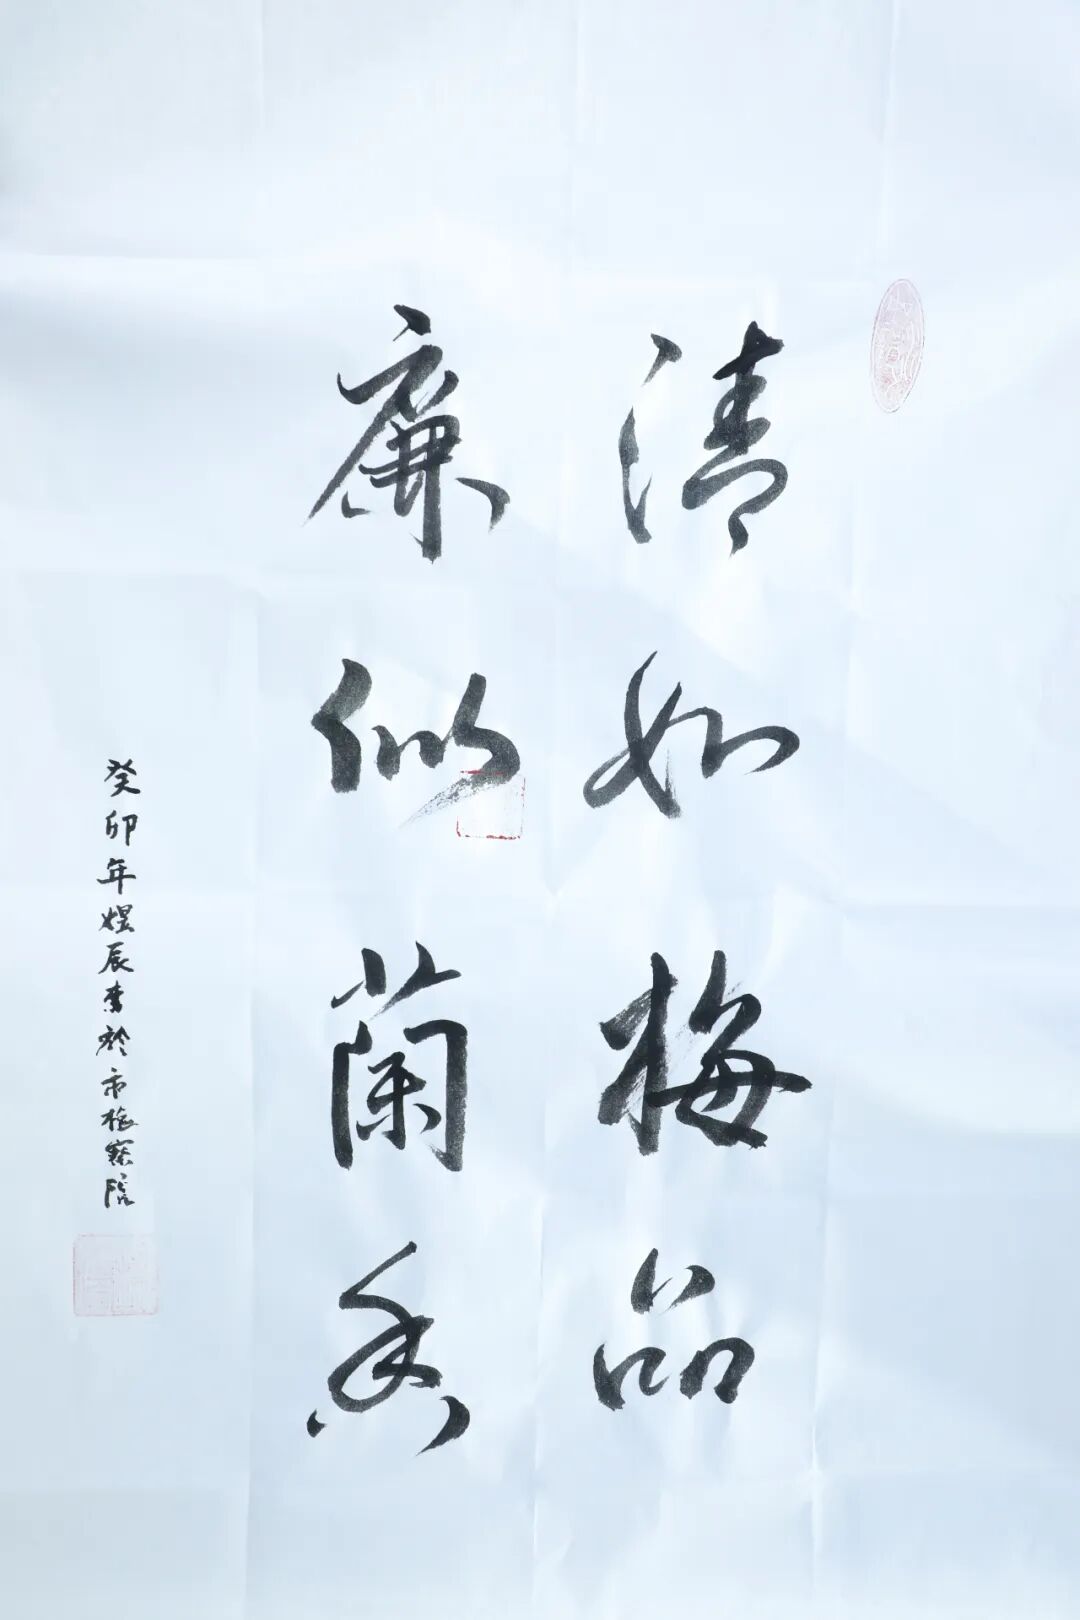 清如梅品
廉似蘭香
癸卯年煜辰書於市检察院